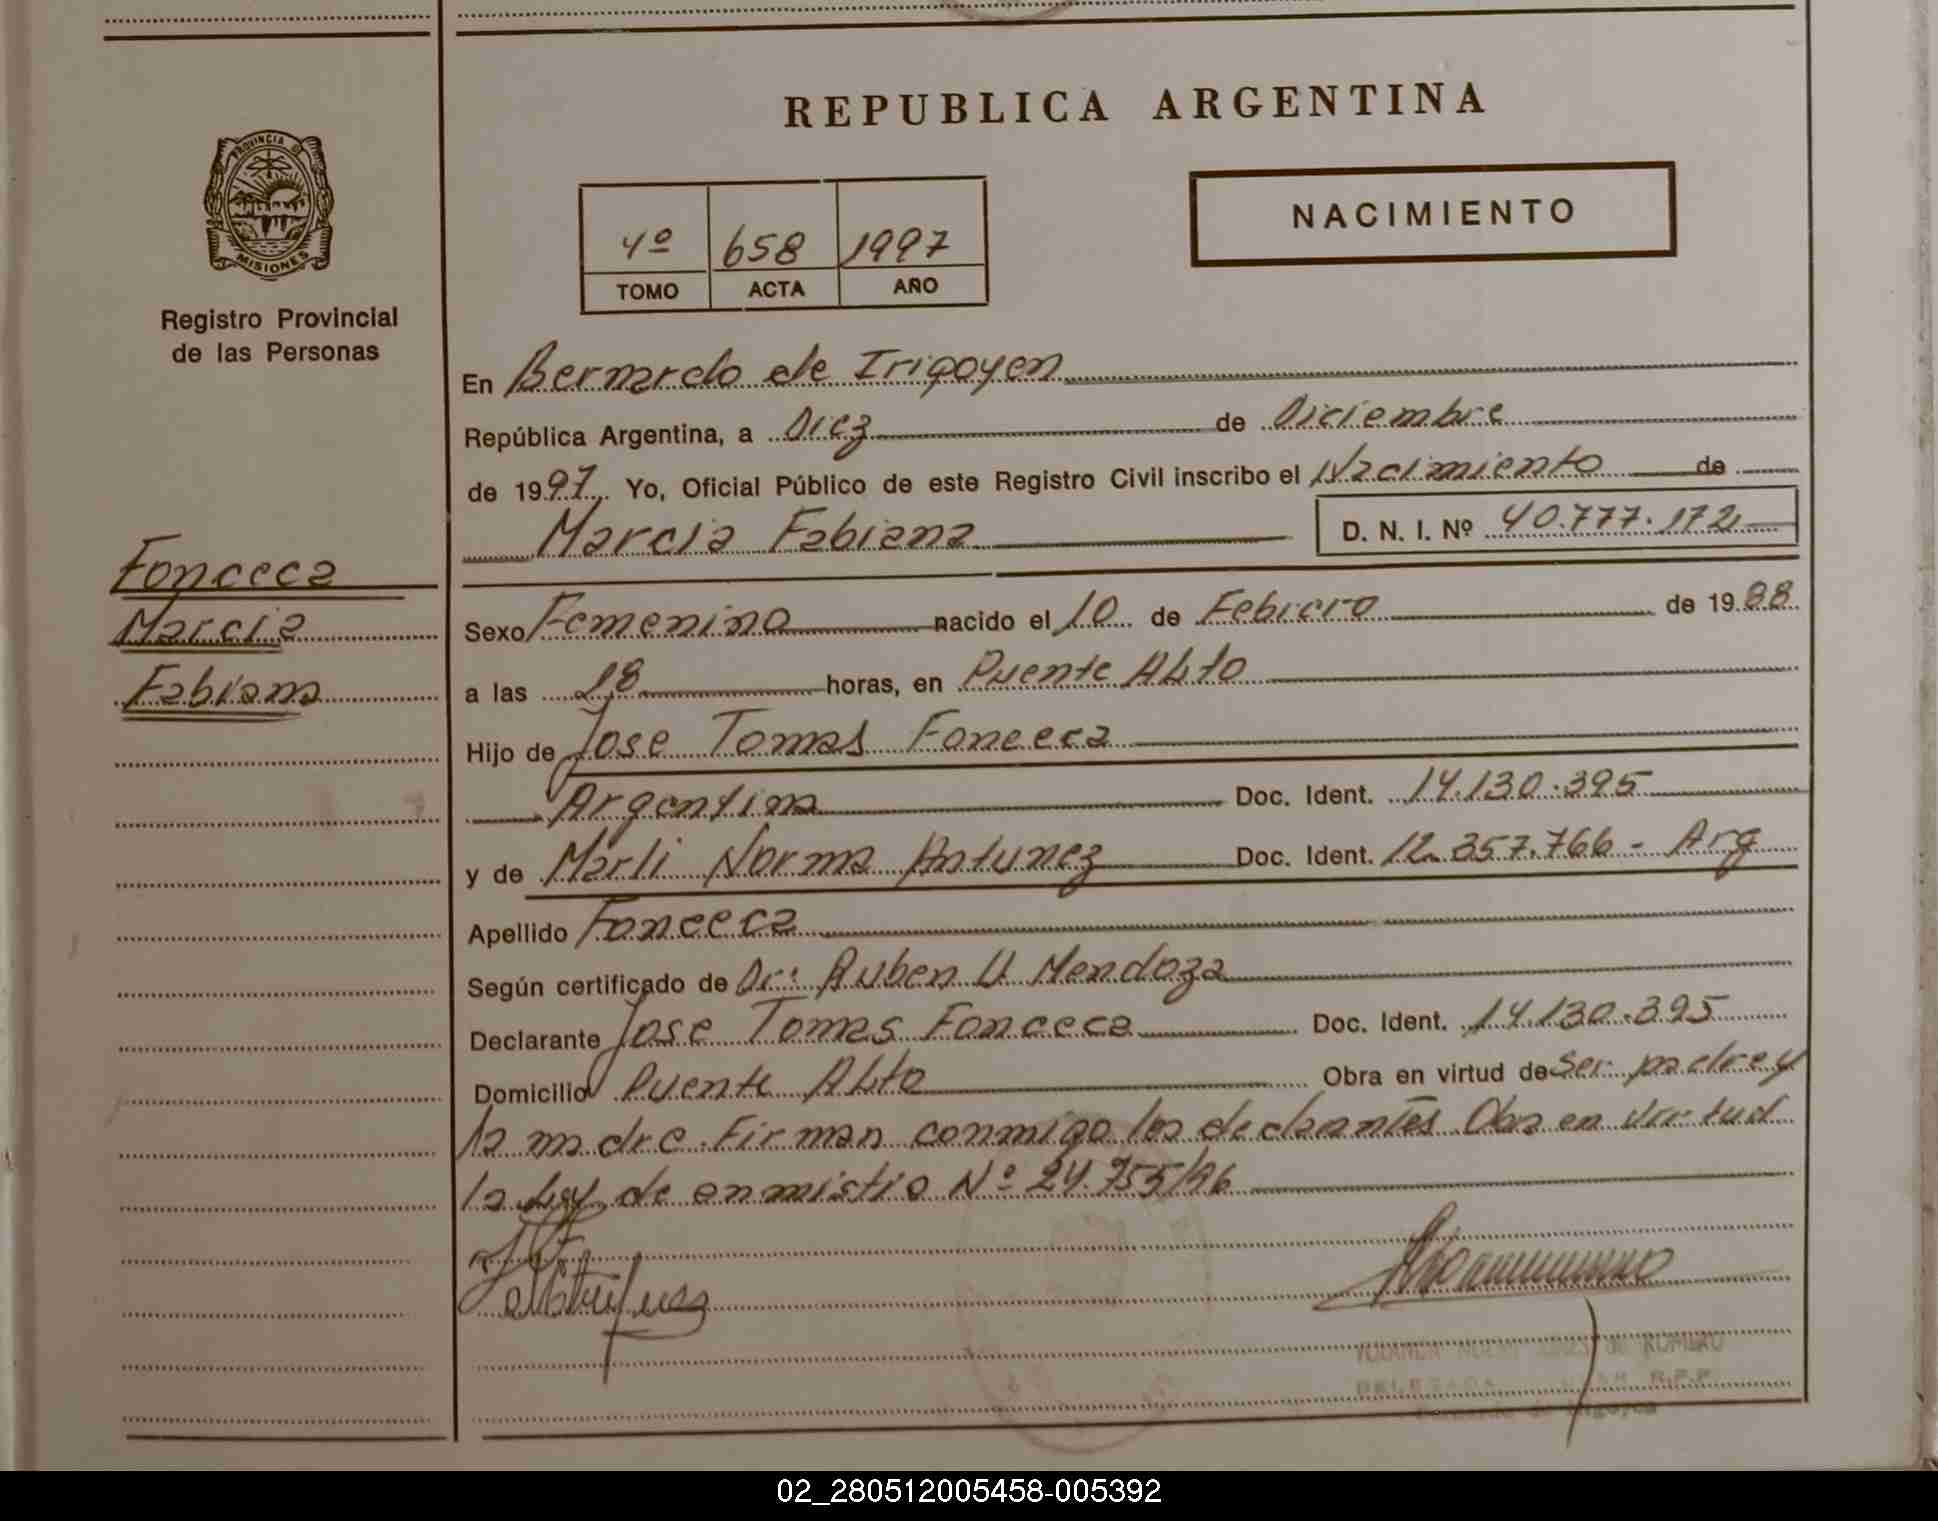 REPUBLICA ARGENTINA
PROVINCIA DE
MISIONES
Registro Provincial
de las Personas
4º 658 1997
TOMO ACTA AÑO
NACIMIENTO
En Bernardo de Irigoyen
República Argentina, a Diez de Diciembre
de 1997. Yo, Oficial Público de este Registro Civil inscribo el Nacimiento de
Marcia Fabiana D. N. I. Nº 40.777.172
Fonceca
Marcia
Fabiana
Sexo Femenino nacido el 10 de Febrero de 1988
a las 18 horas, en Puente Alto
Hijo de Jose Tomas Fonceca
Argentina Doc. Ident. 14.130.395
y de Marli Norma Antunez Doc. Ident. 12.357.766 - Arg
Apellido Fonceca
Según certificado de Dr: Ruben U Mendoza
Declarante Jose Tomas Fonceca Doc. Ident. 14.130.395
Domicilio Puente Alto Obra en virtud de ser padre y
la madre. Firman conmigo los declarantes Obra en virtud
la Ley de anmistio Nº 24.755/96
de ROMERO
DELEGADA R.P.P.
02_280512005458-005392